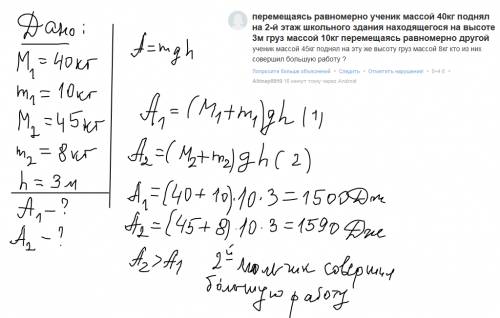 Дано:
M₁=40кг
m₁=10кг
M₂=45кг
m₂=8кг
h=3м
A₁-?
A₂-?
A=mgh
A₁=(M₁+m₁)gh(1)
A₂=(M₂+m₂)gh(2)
A₁=(40+10)·10·3=1500Дж
A₂=(45+8)·10·3=1590Дж
A₂>A₁ 2й мальчик совершил
большую работу
перемещаясь равномерно ученик массой 40кг поднял
на 2-й этаж школьного здания находящегося на высоте
3м груз массой 10кг перемещаясь равномерно другой
ученик массой 45кг поднял на эту же высоту груз массой 8кг кто из них
совершил большую работу ?
Попросите больше объяснений Следить Отметить нарушение!
16 минут тому через Android